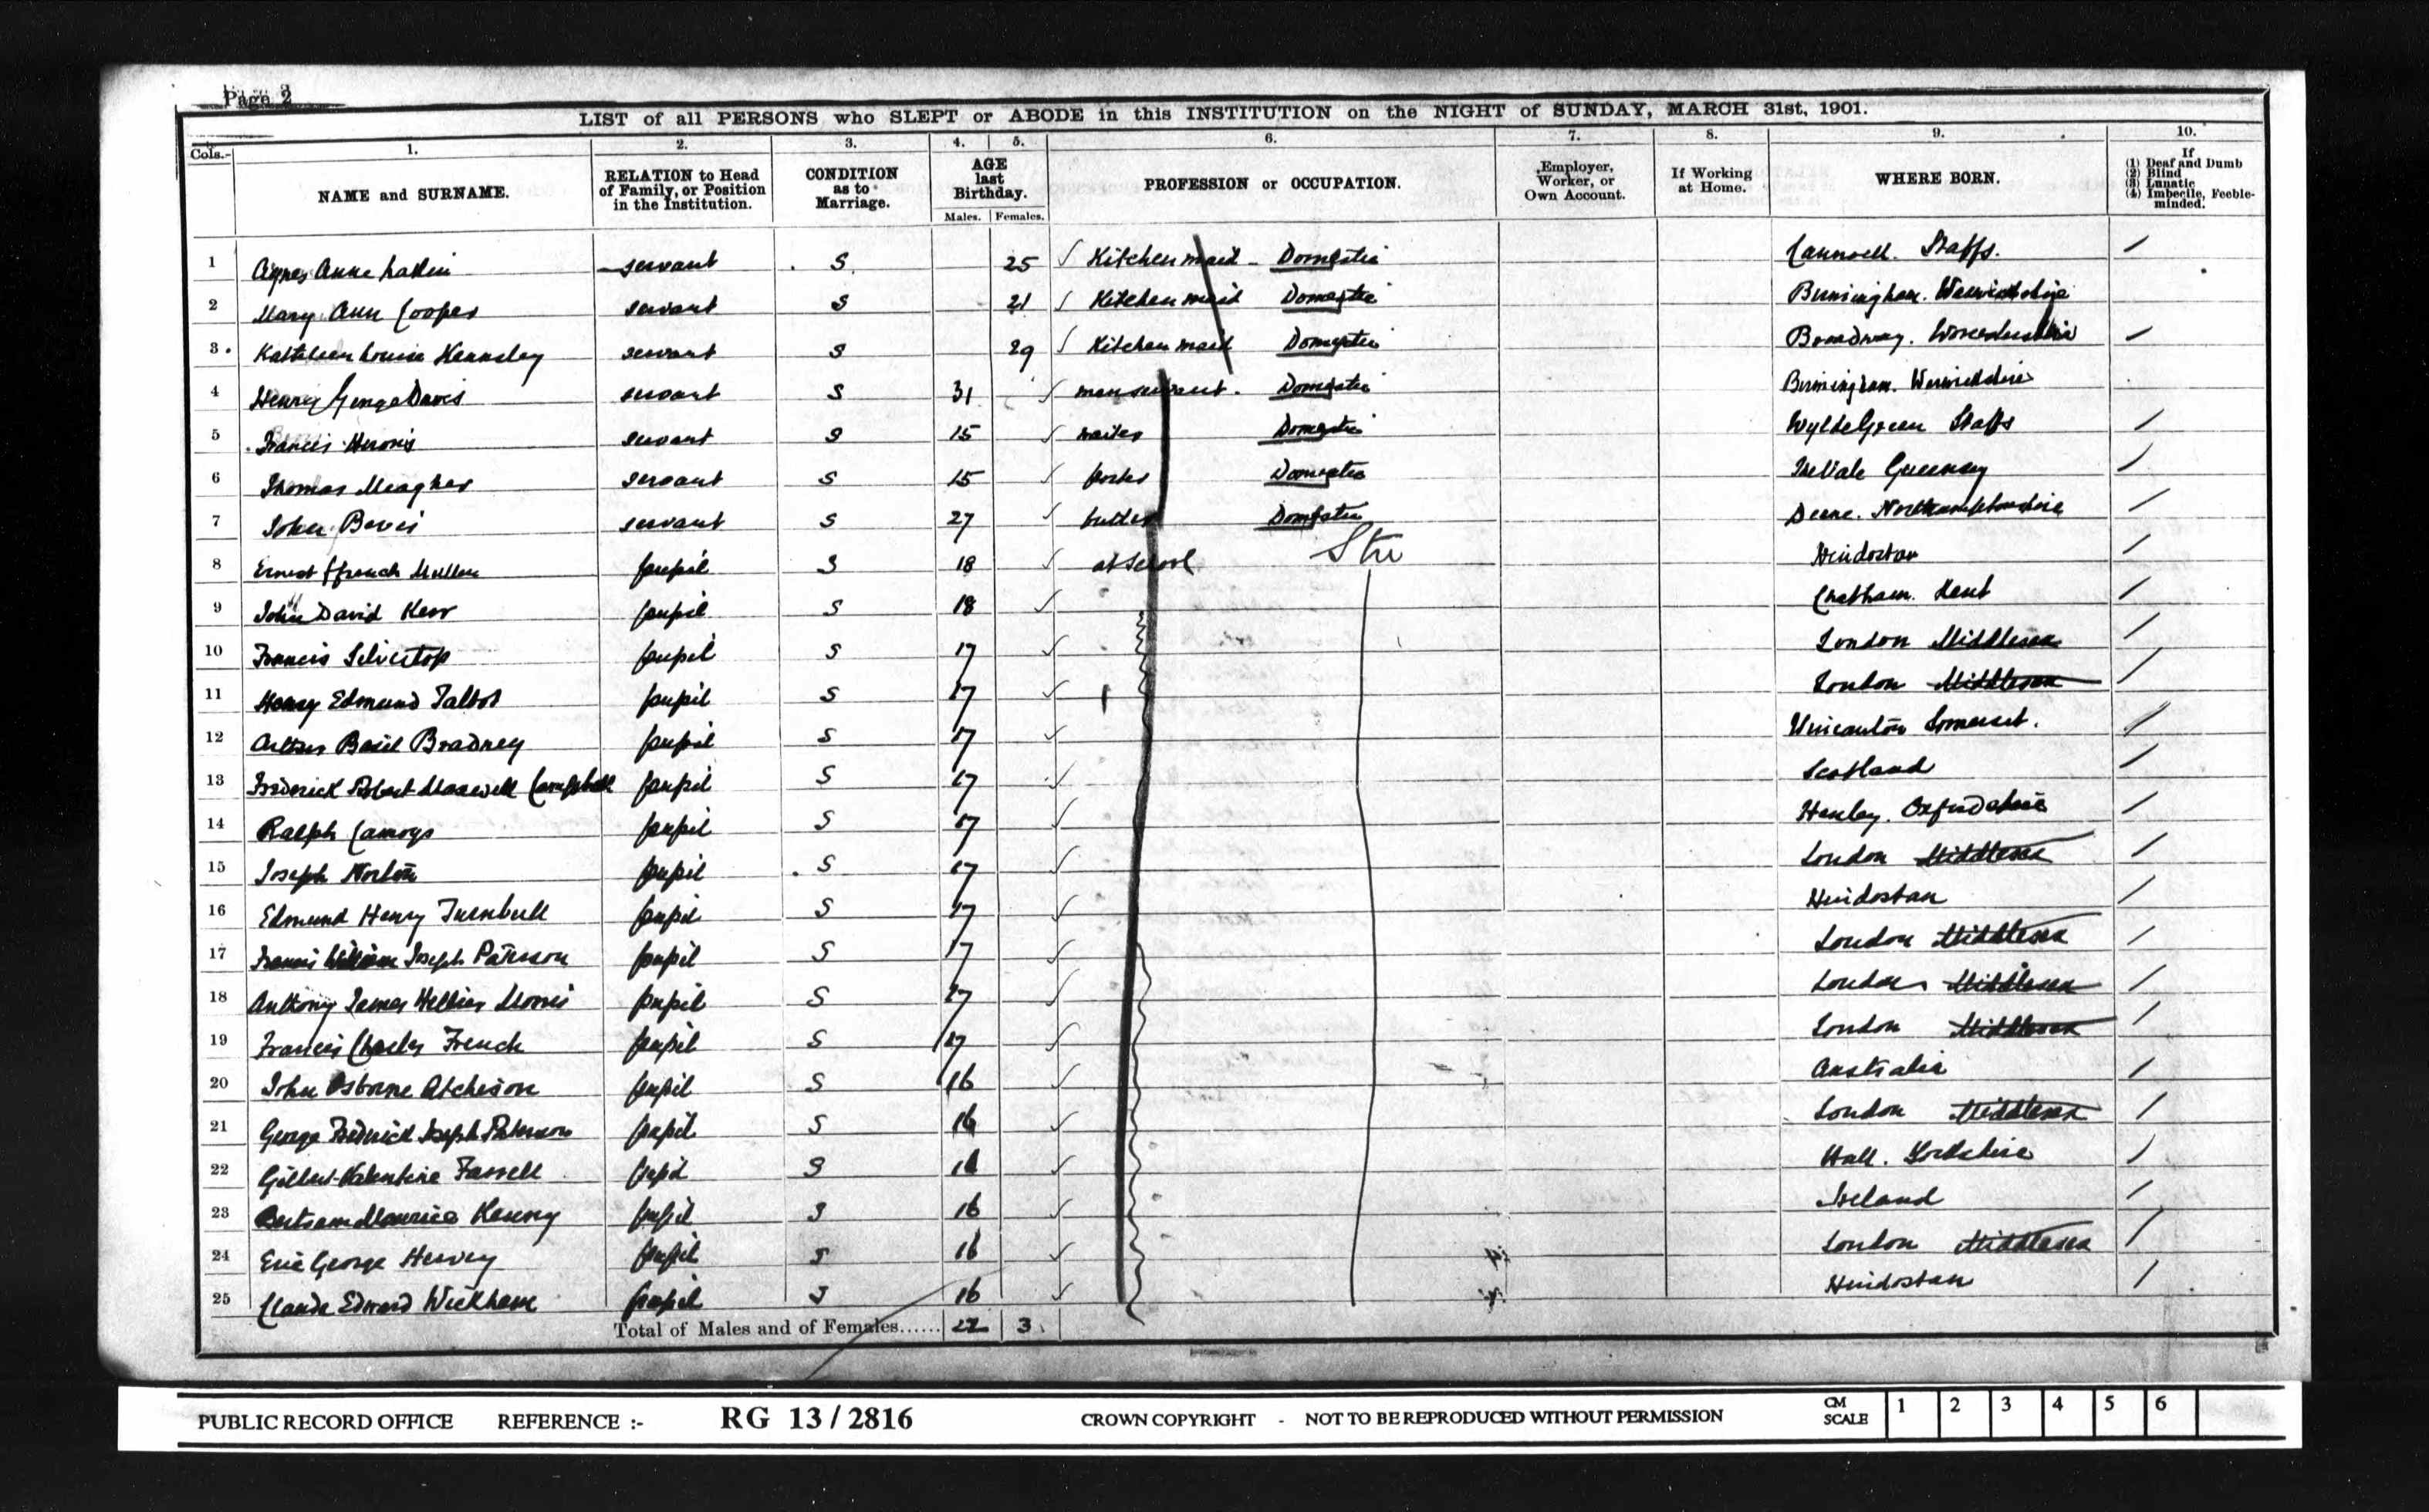 Page 2
LIST of all PERSONS who SLEPT or ABODE in this INSTITUTION on the NIGHT of SUNDAY, MARCH 31st, 1901.
Cols.- 1. 2. 3. 4. 5. 6. 7. 8. 9. 10.
NAME and SURNAME. RELATION to Head of Family, or Position in the Institution. CONDITION as to Marriage. AGE last Birthday. Males. Females. PROFESSION or OCCUPATION. Employer, Worker, or Own Account. If Working at Home. WHERE BORN. If (1) Deaf and Dumb (2) Blind (3) Lunatic (4) Imbecile, Feeble-minded.
1 Agnes Anne servant S 25 Kitchen maid - Domestic Staffs.
2 Mary Ann Cooper servant S 21 Kitchen maid Domestic Birmingham. Warwickshire
3 Kathleen Louisa servant S 29 Kitchen maid Domestic Broadway. Worcestershire
4 Henry George Davis servant S 31 man servant. Domestic Birmingham. Warwickshire
5 Francis servant S 15 waiter Domestic Wylde Green Staffs
6 Thomas Meagher servant S 15 porter Domestic The Vale Guernsey
7 John servant S 27 butler Domestic Deene. Northamptonshire
8 Ernest ffrench Mullen pupil S 18 at School Stu Hindostan
9 John David Kerr pupil S 18 Chatham. Kent
10 Francis Silvertop pupil S 17 London Middlesex
11 Henry Edmund Talbot pupil S 17 London Middlesex
12 Arthur Basil Bradney pupil S 17 Wincanton Somerset.
13 Frederick Robert Maxwell Campbell pupil S 17 Scotland
14 Ralph Camoys pupil S 17 Henley. Oxfordshire
15 Joseph Norton pupil S 17 London Middlesex
16 Edmund Henry Turnbull pupil S 17 Hindostan
17 Francis William Joseph Paterson pupil S 17 London Middlesex
18 Anthony James Morris pupil S 17 London Middlesex
19 Francis Charles French pupil S 17 London Middlesex
20 John Osborne Atcheson pupil S 16 Australia
21 George Frederick Joseph Paterson pupil S 16 London Middlesex
22 Gilbert Valentine Farrell pupil S 16 Hull. Yorkshire
23 Bertram Maurice Kenny pupil S 16 Ireland
24 Eric George Hervey pupil S 16 London Middlesex
25 Claude Edward Wickham pupil S 16 Hindostan
Total of Males and of Females...... 22 3
PUBLIC RECORD OFFICE REFERENCE :- RG 13 / 2816 CROWN COPYRIGHT - NOT TO BE REPRODUCED WITHOUT PERMISSION CM SCALE 1 2 3 4 5 6